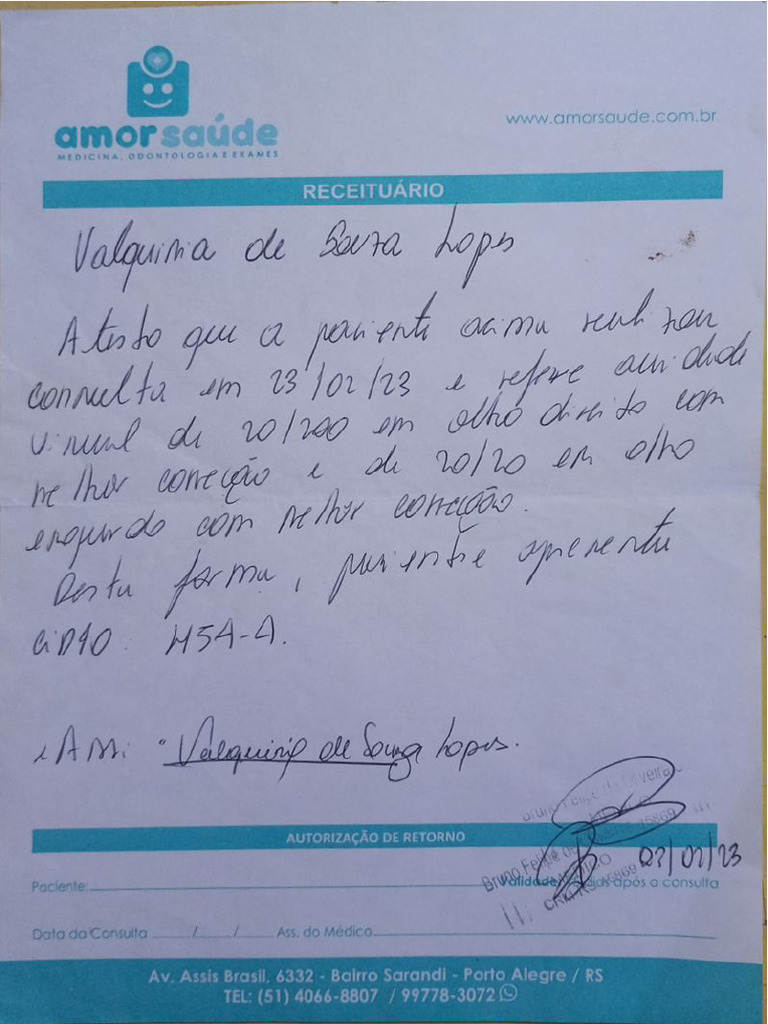 amorsaúde
MEDICINA, ODONTOLOGIA E EXAMES
www.amorsaude.com.br
RECEITUÁRIO
Valquiria de Souza Lopes
Atesto que a paciente acima realizou
consulta em 23/02/23 e refere acuidade
visual de 20/200 em olho direito com
melhor correção e de 20/20 em olho
esquerdo com melhor correção.
Desta forma, paciente apresenta
CID10: H54-4.
Ass: "Valquiria de Souza Lopes.
Bruno Felipe de Oliveira
AUTORIZAÇÃO DE RETORNO
Bruno Felipe
MÉDICO
Paciente:
Validade após a consulta
Data da Consulta / / Ass. do Médico
Av. Assis Brasil, 6332 - Bairro Sarandi - Porto Alegre / RS
TEL: (51) 4066-8807 / 99778-3072